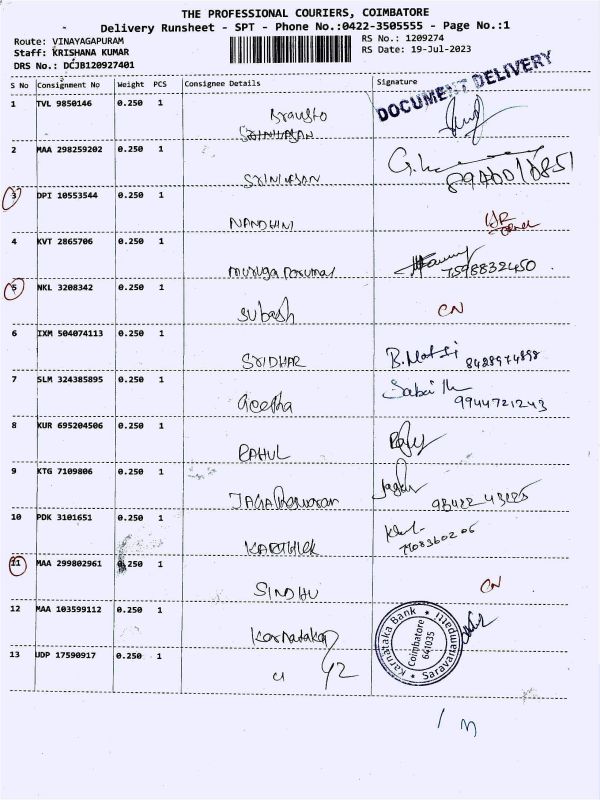 THE PROFESSIONAL COURIERS, COIMBATORE
Delivery Runsheet - SPT - Phone No.:0422-3505555 - Page No.:1
Route: VINAYAGAPURAM RS No.: 1209274
Staff: KRISHANA KUMAR RS Date: 19-Jul-2023
DRS No.: DCJB120927401
S No Consignment No Weight PCS Consignee Details Signature
DOCUMENT DELIVERY
1 TVL 9850146 0.250 1
2 MAA 298259202 0.250 1
SRINIVASAN
3 DPI 10553544 0.250 1
NANDHINI
4 KVT 2865706 0.250 1
muruga Perumal 7598832450
5 NKL 3208342 0.250 1
Subash CN
6 IXM 504074113 0.250 1
SRIDHAR 8428974898
7 SLM 324385895 0.250 1
Geetha 9944721243
8 KUR 695204506 0.250 1
RAHUL
9 KTG 7109806 0.250 1
JAGAtheswaran
10 PDK 3101651 0.250 1
KARTHICK 7708360206
11 MAA 299802961 0.250 1
SINDHU CN
12 MAA 103599112 0.250 1
Karnataka
Karnataka Bank
Coimbatore
641035
Saravanampatti
13 UDP 17590917 0.250 1